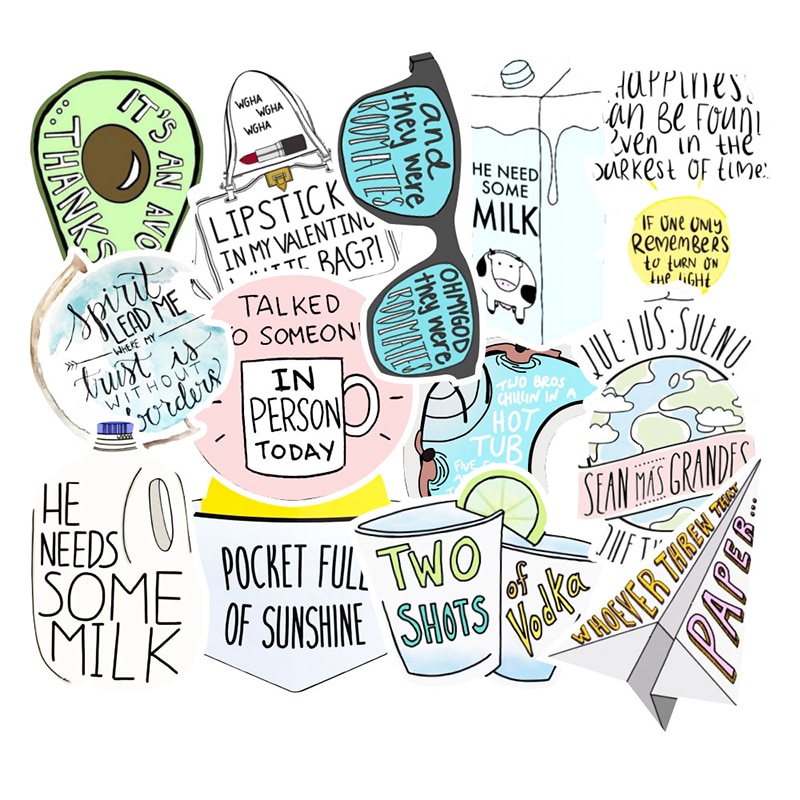 IT'S AN AVO
..THANKS
WGHA
WGHA
WGHA
LIPSTICK
IN MY VALENTINO
WHITE BAG?!
and
they were
ROOMATES
OHMYGOD
they were
ROOMATES
HE NEED
SOME
MILK
HAPPINESS
CAN BE FOUND
EVEN in the
DARKEST OF times
IF ONE ONLY
REMEMBERS
to turn on
the light
Spirit
LEAD ME
WHERE MY
trust is
WITHOUT
borders
TALKED
TO SOMEONE
IN
PERSON
TODAY
TWO BROS
CHILLIN IN A
HOT
TUB
FIVE
QUE·TUS·SUEÑO
SEAN MÁS GRANDES
HE
NEEDS
SOME
MILK
POCKET FULL
OF SUNSHINE
TWO
SHOTS
of
Vodka
WHOEVER THREW THAT
PAPER...